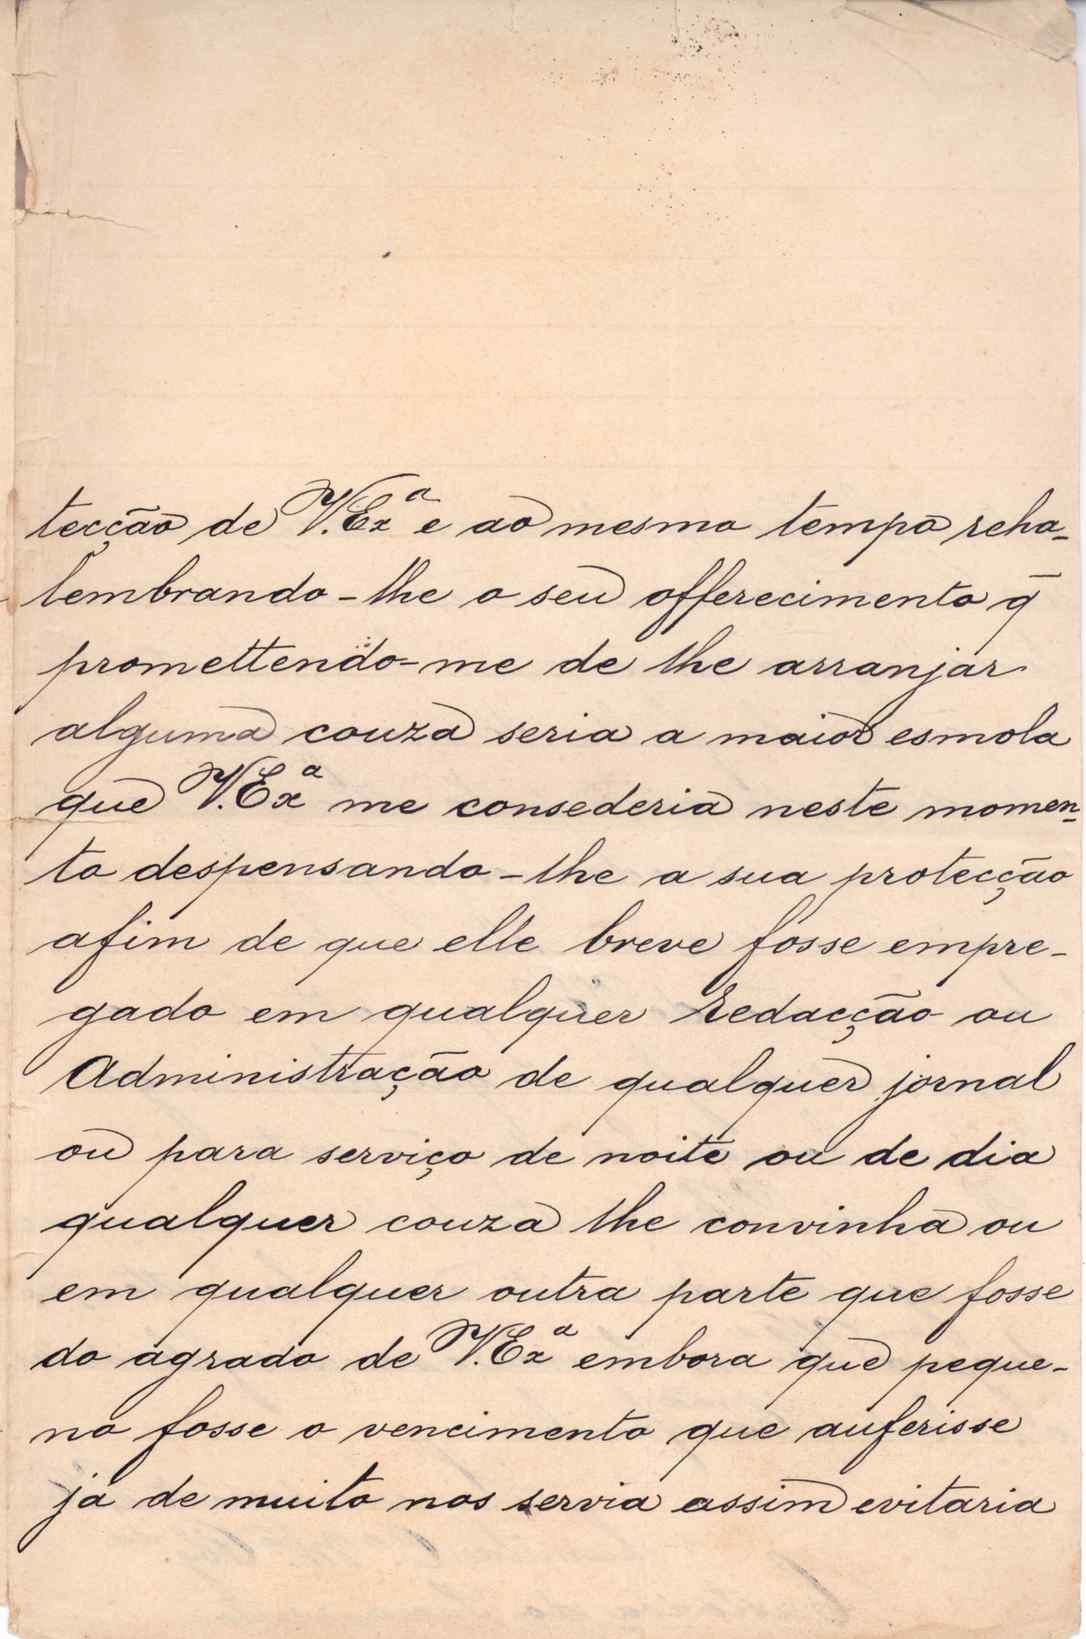 tecção de V. Exª e ao mesmo tempo reha-
lembrando-lhe o seu offerecimento q̃
promettendo-me de lhe arranjar
alguma couza seria a maior esmola
que V. Exª me consederia neste momen-
to despensando-lhe a sua protecção
afim de que elle breve fosse empre-
gado em qualquer Redacção ou
Administração de qualquer jornal
ou para serviço de noite ou de dia
qualquer couza lhe convinha ou
em qualquer outra parte que fosse
do agrado de V. Exª embora que peque-
no fosse o vencimento que auferisse
ja de muito nos servia assim evitaria